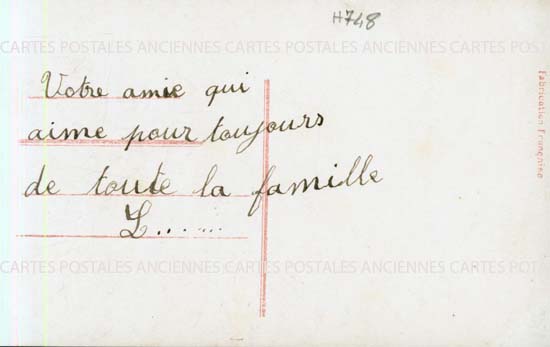 H748
CARTES POSTALES ANCIENNES CARTES POSTALES ANCIENNES CARTES POSTALES
Votre amie qui
aime pour toujours
de toute la famille
L......
CARTES POSTALES ANCIENNES CARTES POSTALES ANCIENNES CARTES POSTALES
Fabrication Française